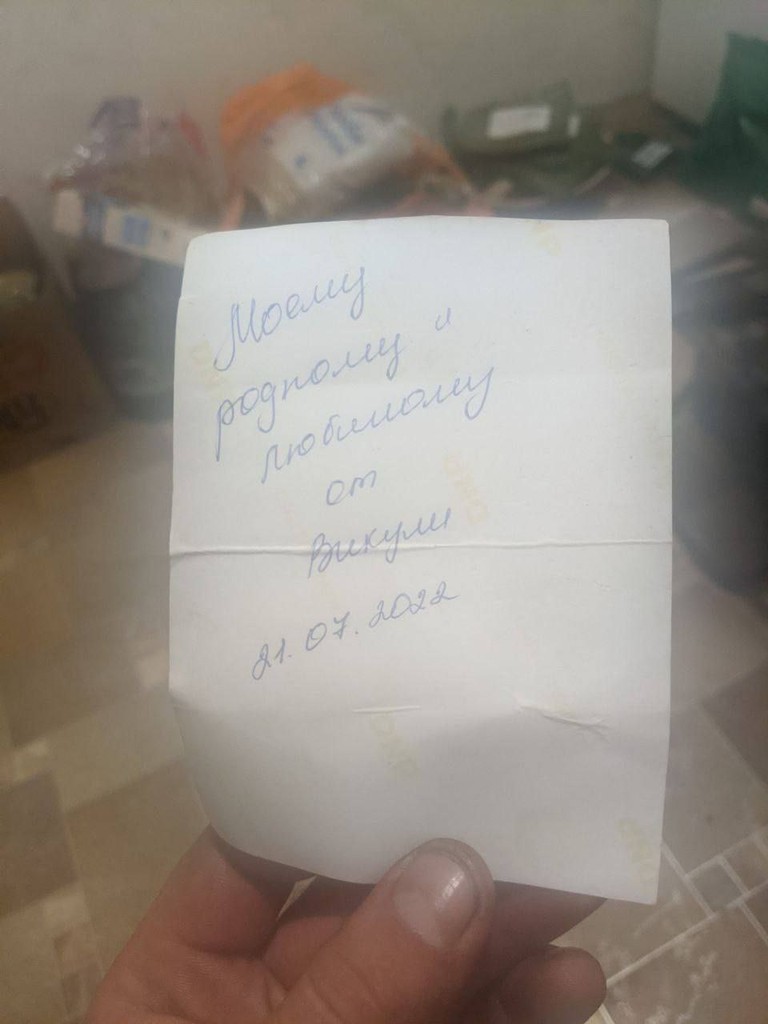 Моему
родному и
любимому
от
Викули
21.07.2022